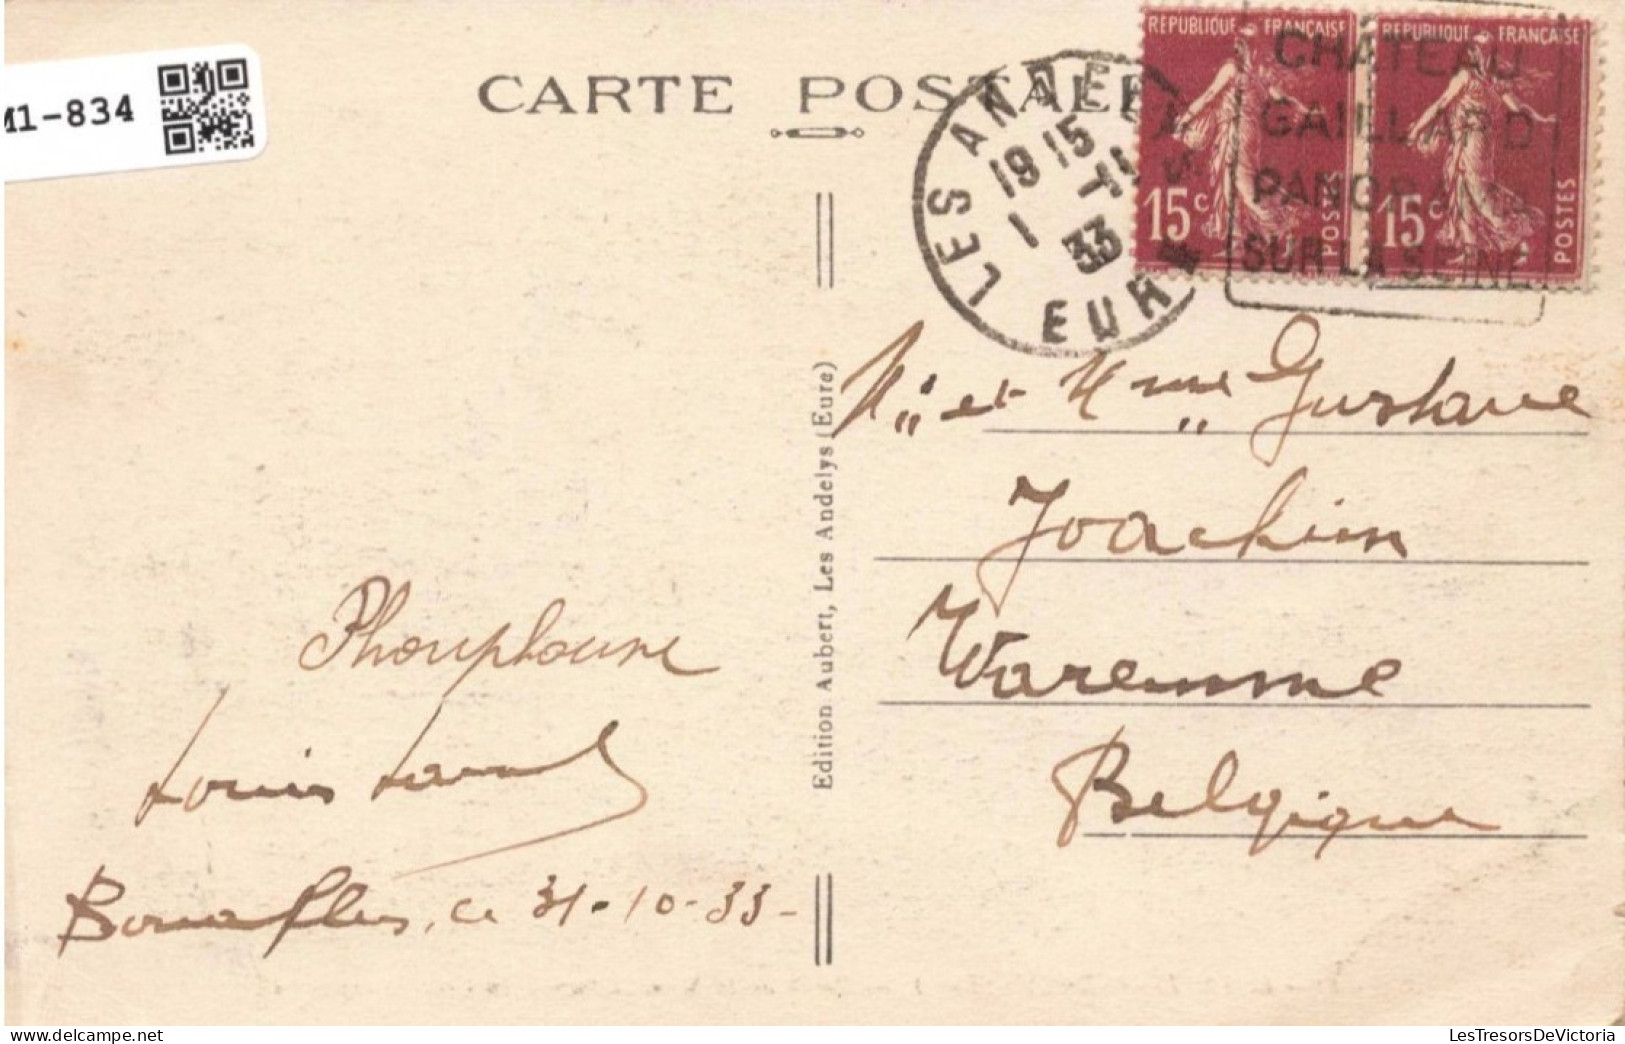 M1-834
CARTE POSTALE
LES ANDELYS
19 15
1 -11
33
EURE
REPUBLIQUE FRANÇAISE
15c
POSTES
REPUBLIQUE FRANÇAISE
15c
POSTES
CHATEAU
GAILLARD
PANORAMA
SUR LA SEINE
Mr et Mme Gustave
Joachim
Waremme
Belgique
Edition Aubert, Les Andelys (Eure)
Louis
Bouafles, ce 31-10-33-
LesTresorsDeVictoria
www.delcampe.net